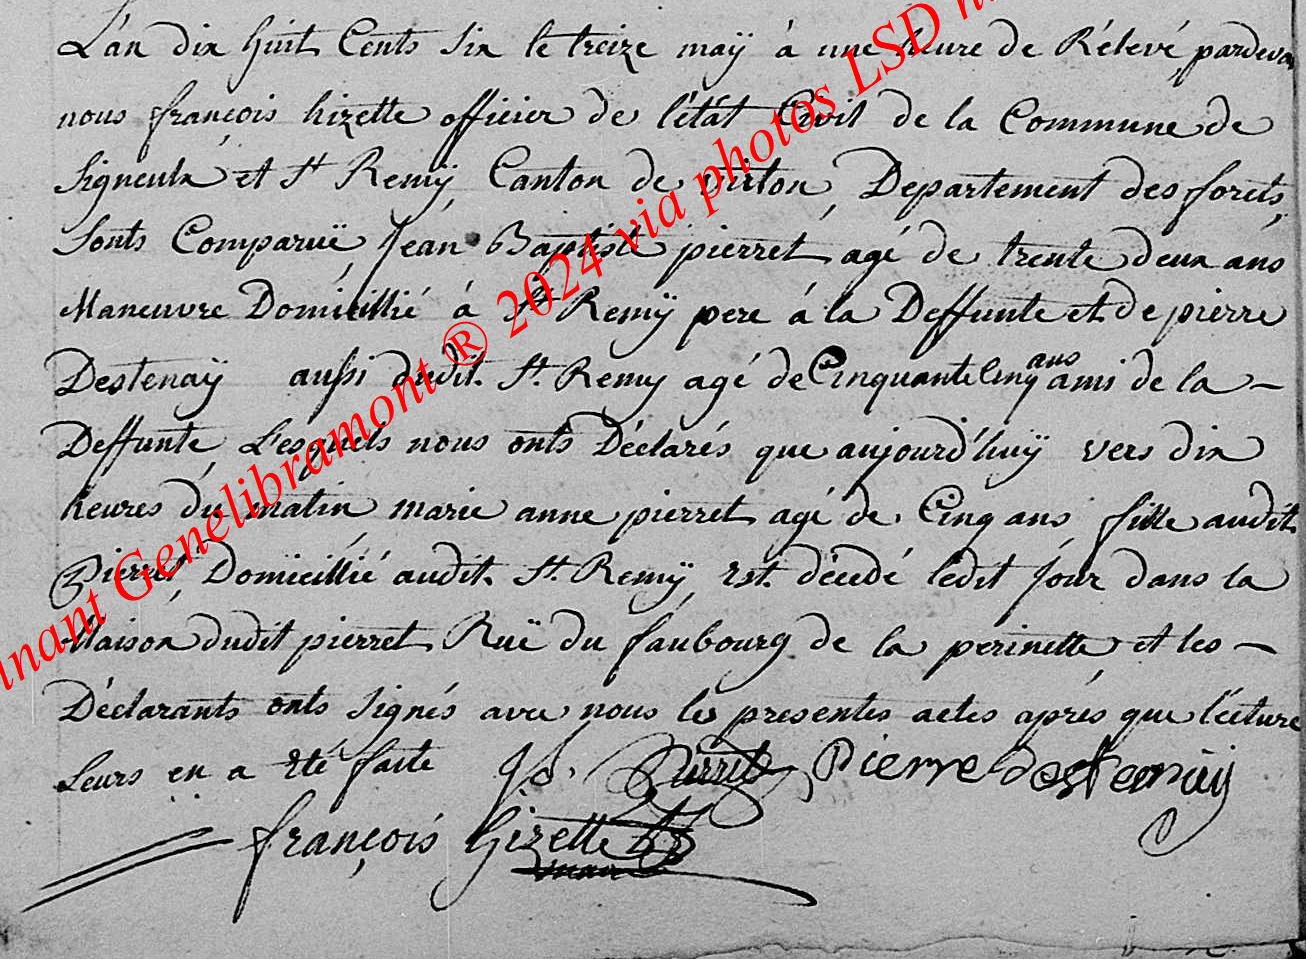 L'an dix huit Cents Six le treize maÿ à une heure de Rélevé pardevan
nous françois hizette officier de l'état Civil de la Commune de
Signeulx et St Remÿ Canton de virton, Departement des forets,
Sonts Comparuë Jéan Baptist pierret, agé de trente deux ans
Maneuvre Domicillié à St Remÿ pere à la Deffunte et de pierre
Destenaÿ aussi dudit St. Remy agé de Cinquante Cinq ans ami de la –
Deffunte, Lesquels nous onts Déclarés que aujourd'huÿ vers dix
heures du matin marie anne pierret agé de Cinq ans fille audit
Pierret, Domicillié audit St. Remÿ, Est décédé ledit Jour dans la
Maison dudit pierret Ruë du faubourg de la perinette et les –
Déclarants onts Signés avec nous les presentes actes aprés que lécture
Leurs en a Eté faite Jb. Pierret Pierre destenaÿ
françois Hizette
maire
nant Genelibramont ® 2024 via photos LSD